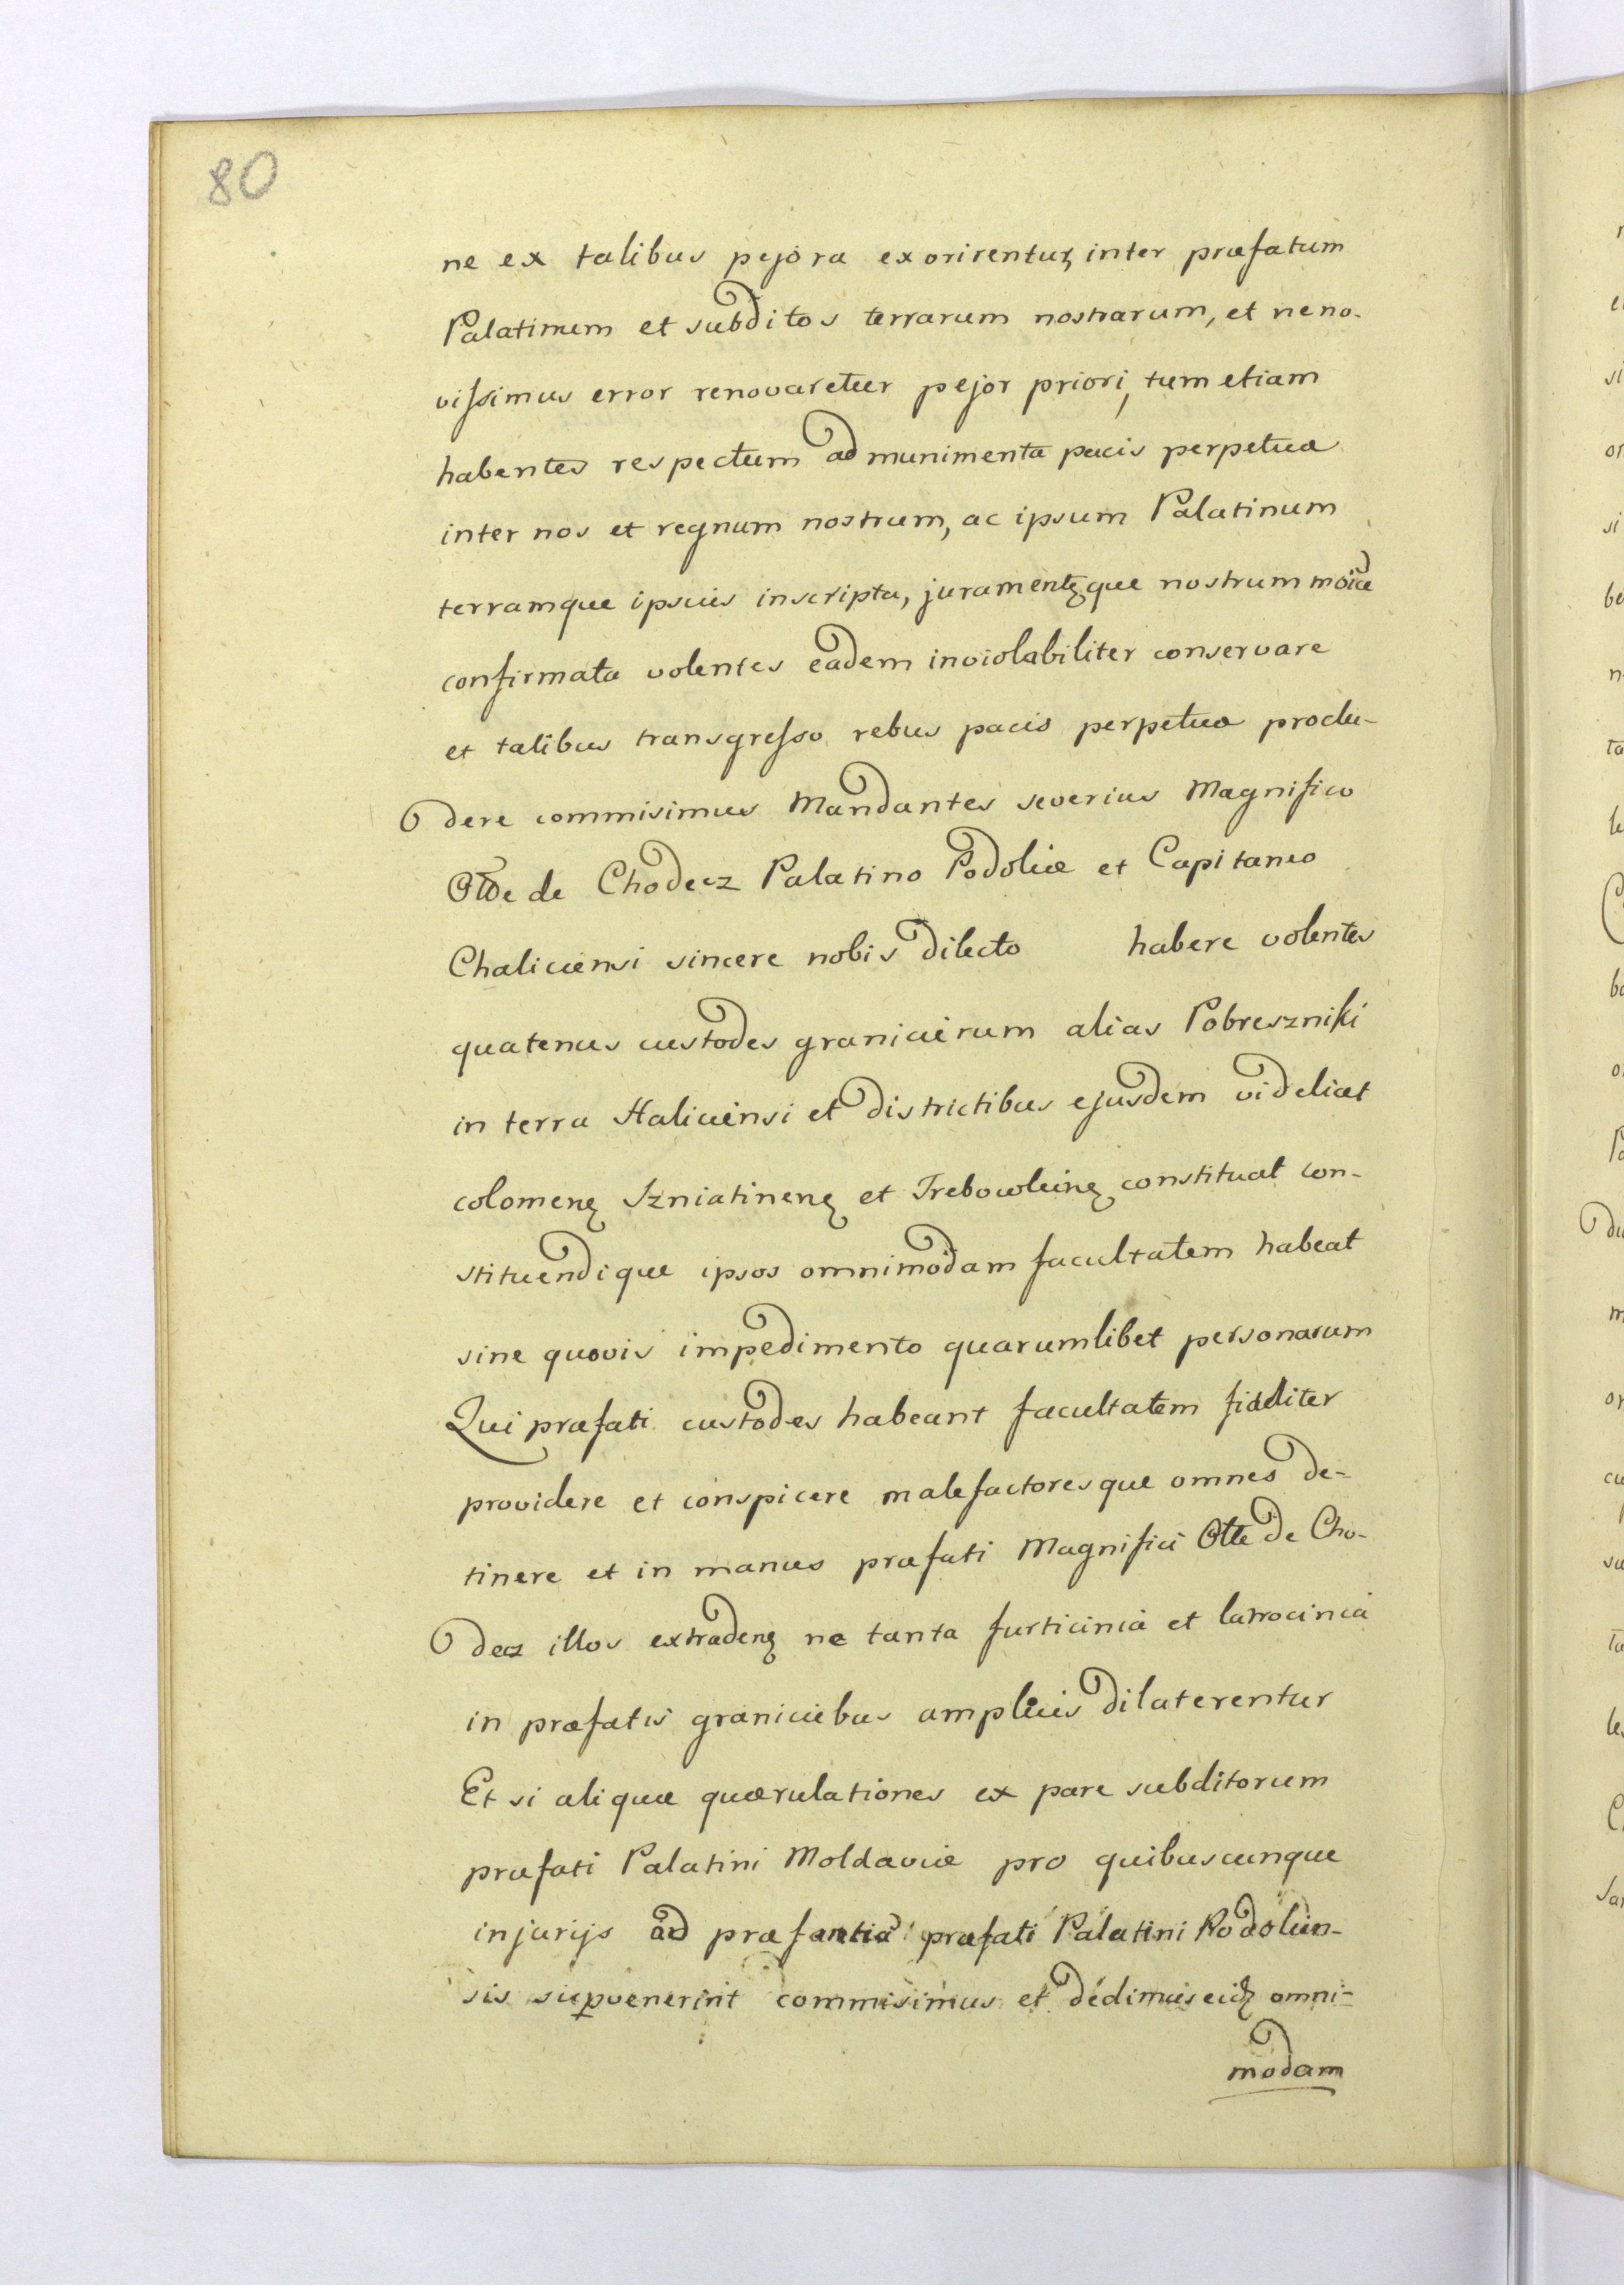 80
ne ex talibus pejora exorirentur, inter præfatum
Palatinum et subditos terrarum nostrarum, et ne no-
vissimus error renovaretur pejor priori, tum etiam
habentes respectum ad munimenta pacis perpetuæ
inter nos et regnum nostrum, ac ipsum Palatinum
terramque ipsius inscripta, juramentqȝque nostrum
confirmata volentes eadem inviolabiliter conservare
et talibus transgresso rebus pacis perpetuæ proclu-
dere commisimus Mandantes severius Magnifico
Otte de Chodecz Palatino Podoliæ et Capitaneo
Chaliciensi sincere nobis dilecto habere volentes
quatenus custodes granicierum alias Pobreszniki
in terra Haliciensi et districtibus ejusdem videlicet
colomenȩ Szniatinenȩ et Trebowleinȩ constituat con-
stituendique ipsos omnimodam facultatem habeat
sine quovis impedimento quarumlibet personarum
Qui præfati custodes habeant facultatem fideliter
providere et conspicere malefactoresque omnes de-
tinere et in manus præfati Magnifici Otte de Cho-
decz illos extradenȩ ne tanta furticinia et latrocinia
in præfatis graniciebus amplius dilaterentur
Et si aliquæ quærulationes ex pare subditorum
præfati Palatini Moldaviæ pro quibuscunque
injurijs ad præsentia præfati Palatini Podolien-
sis supvenerint commisimus et dedimus eidȝ omni-
modam